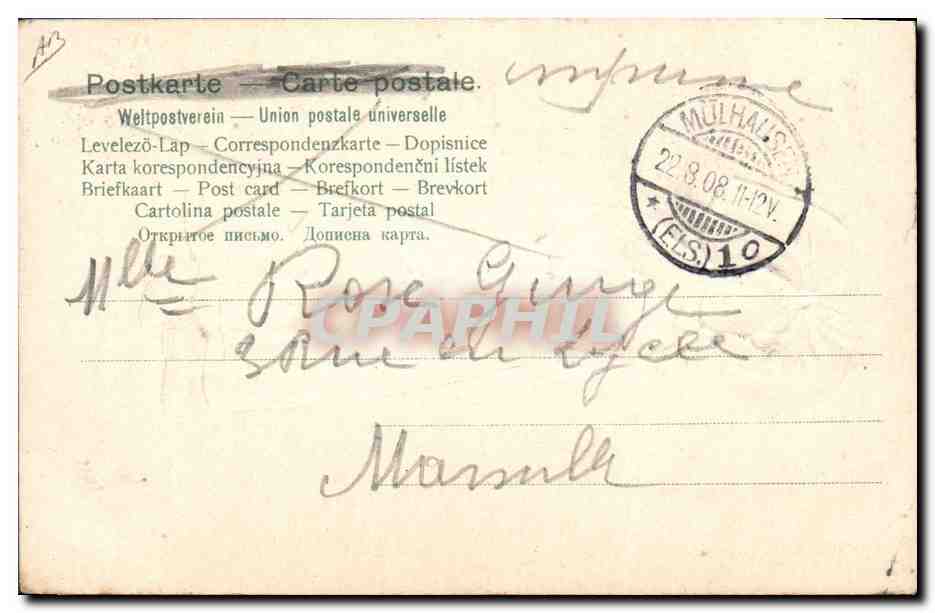 AB
Postkarte — Carte postale.
imprimé
Weltpostverein — Union postale universelle
Levelező-Lap — Correspondenzkarte — Dopisnice
Karta korespondencyjna — Korespondenční lístek
Briefkaart — Post card — Brefkort — Brevkort
Cartolina postale — Tarjeta postal
Открытое письмо. Дописна карта.
MÜLHAUSEN
22.8.08.11-12V.
* (ELS.) 10 *
Mlle Rose
CPAPHIL
3 Rue du Lycée
Marseille